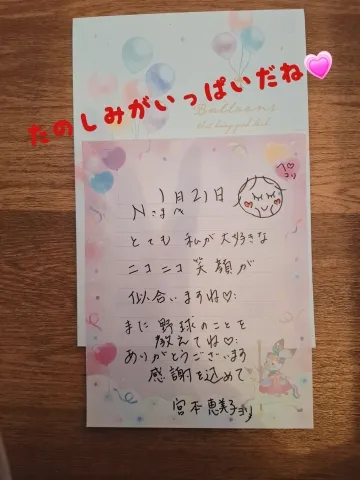 たのしみがいっぱいだね
Balloons
ペコリ
1月21日
Nさま
とても 私が大好きな
ニコニコ 笑顔が
似合いますね♡
また 野球のことを
教えてね♡
ありがとうございます
感謝を込めて
宮本恵美子より